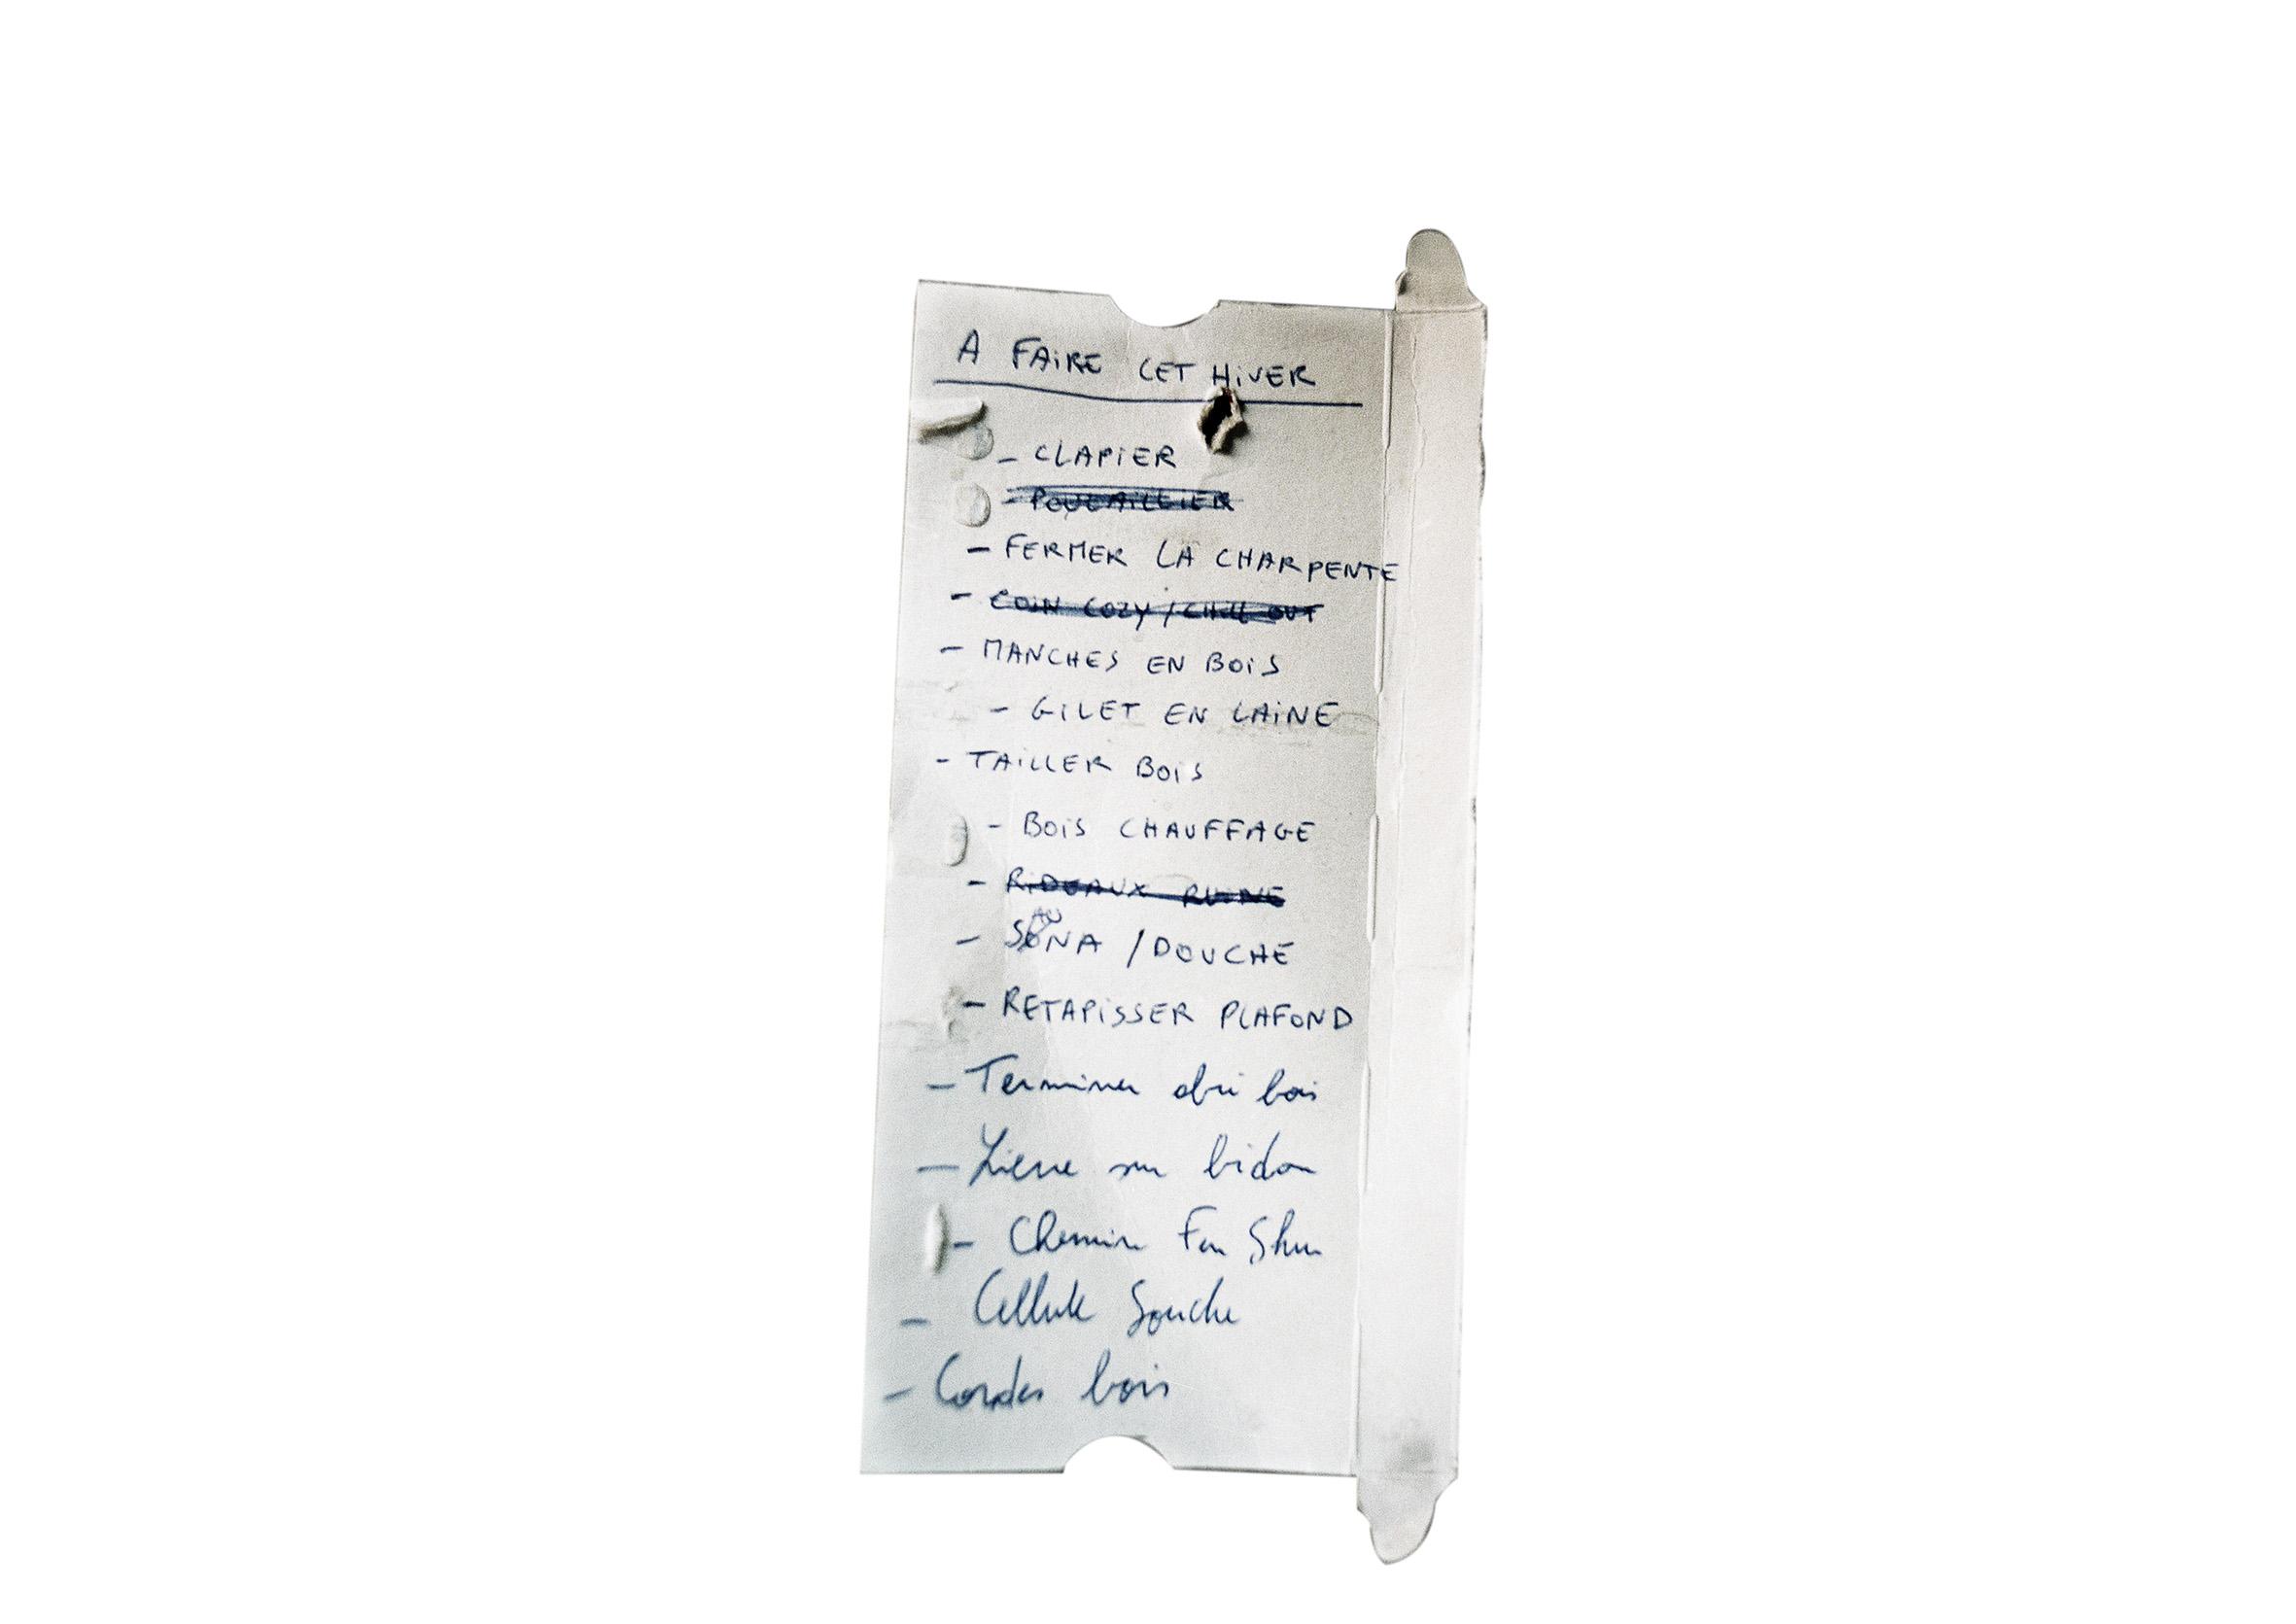 A FAIRE CET HIVER
- CLAPIER
- POULAILLIER
- FERMER LA CHARPENTE
- COIN COZY / CHILL OUT
- MANCHES EN BOIS
- GILET EN LAINE
- TAILLER BOIS
- BOIS CHAUFFAGE
- RIDEAUX RUINE
- SAUNA / DOUCHE
- RETAPISSER PLAFOND
- Terminer abri bois
- Lierre sur bidon
- Chemin Fen Shui
- Cellule Souche
- Cordes bois